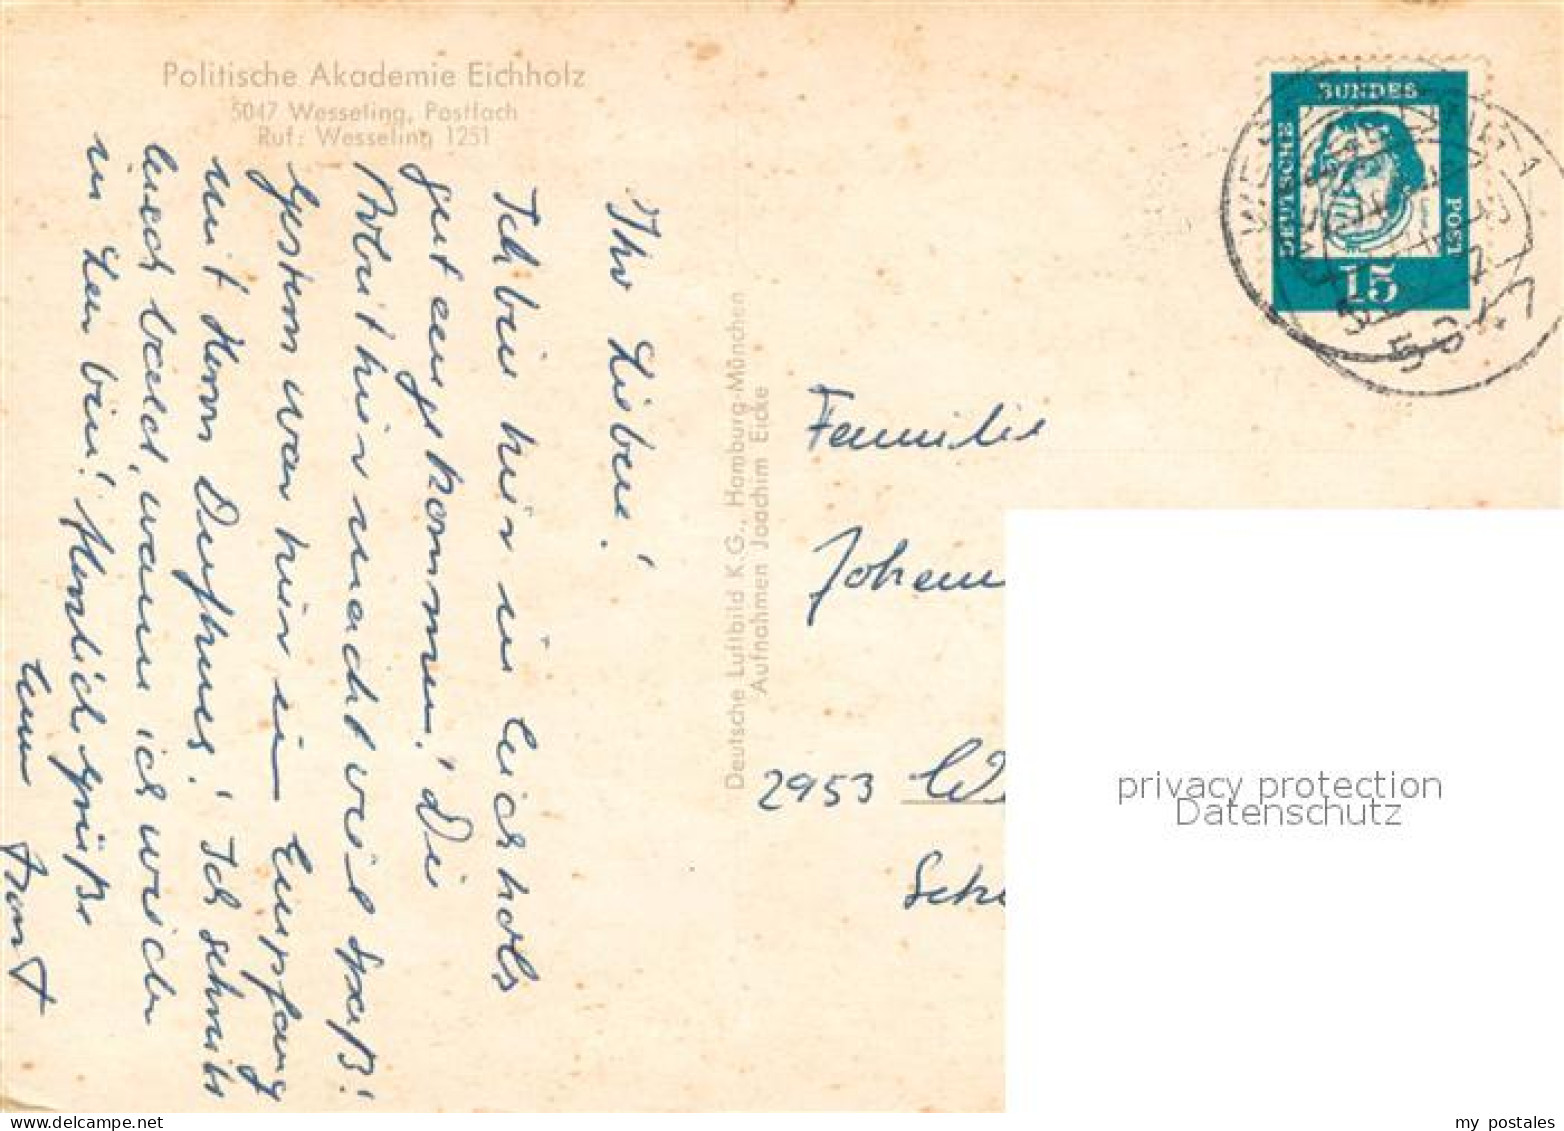 Politische Akademie Eichholz
5047 Wesseling, Postfach
Ruf: Wesseling 1251
Ihr Lieben!
Ich bin hier in Eichholz
gut angekommen! Die
Arbeit hier macht viel Spaß!
Gestern war hier ein Empfang
mit Herrn Dufhues! Ich schreibe
Euch bald, wann ich wieder
in Leer bin! Herzliche Grüße
Euer
Deutsche Luftbild K.G., Hamburg-München
Aufnahmen Joachim Eicke
DEUTSCHE
BUNDES
POST
15
5047
Familie
Johann
2953
privacy protection
Datenschutz
my postales